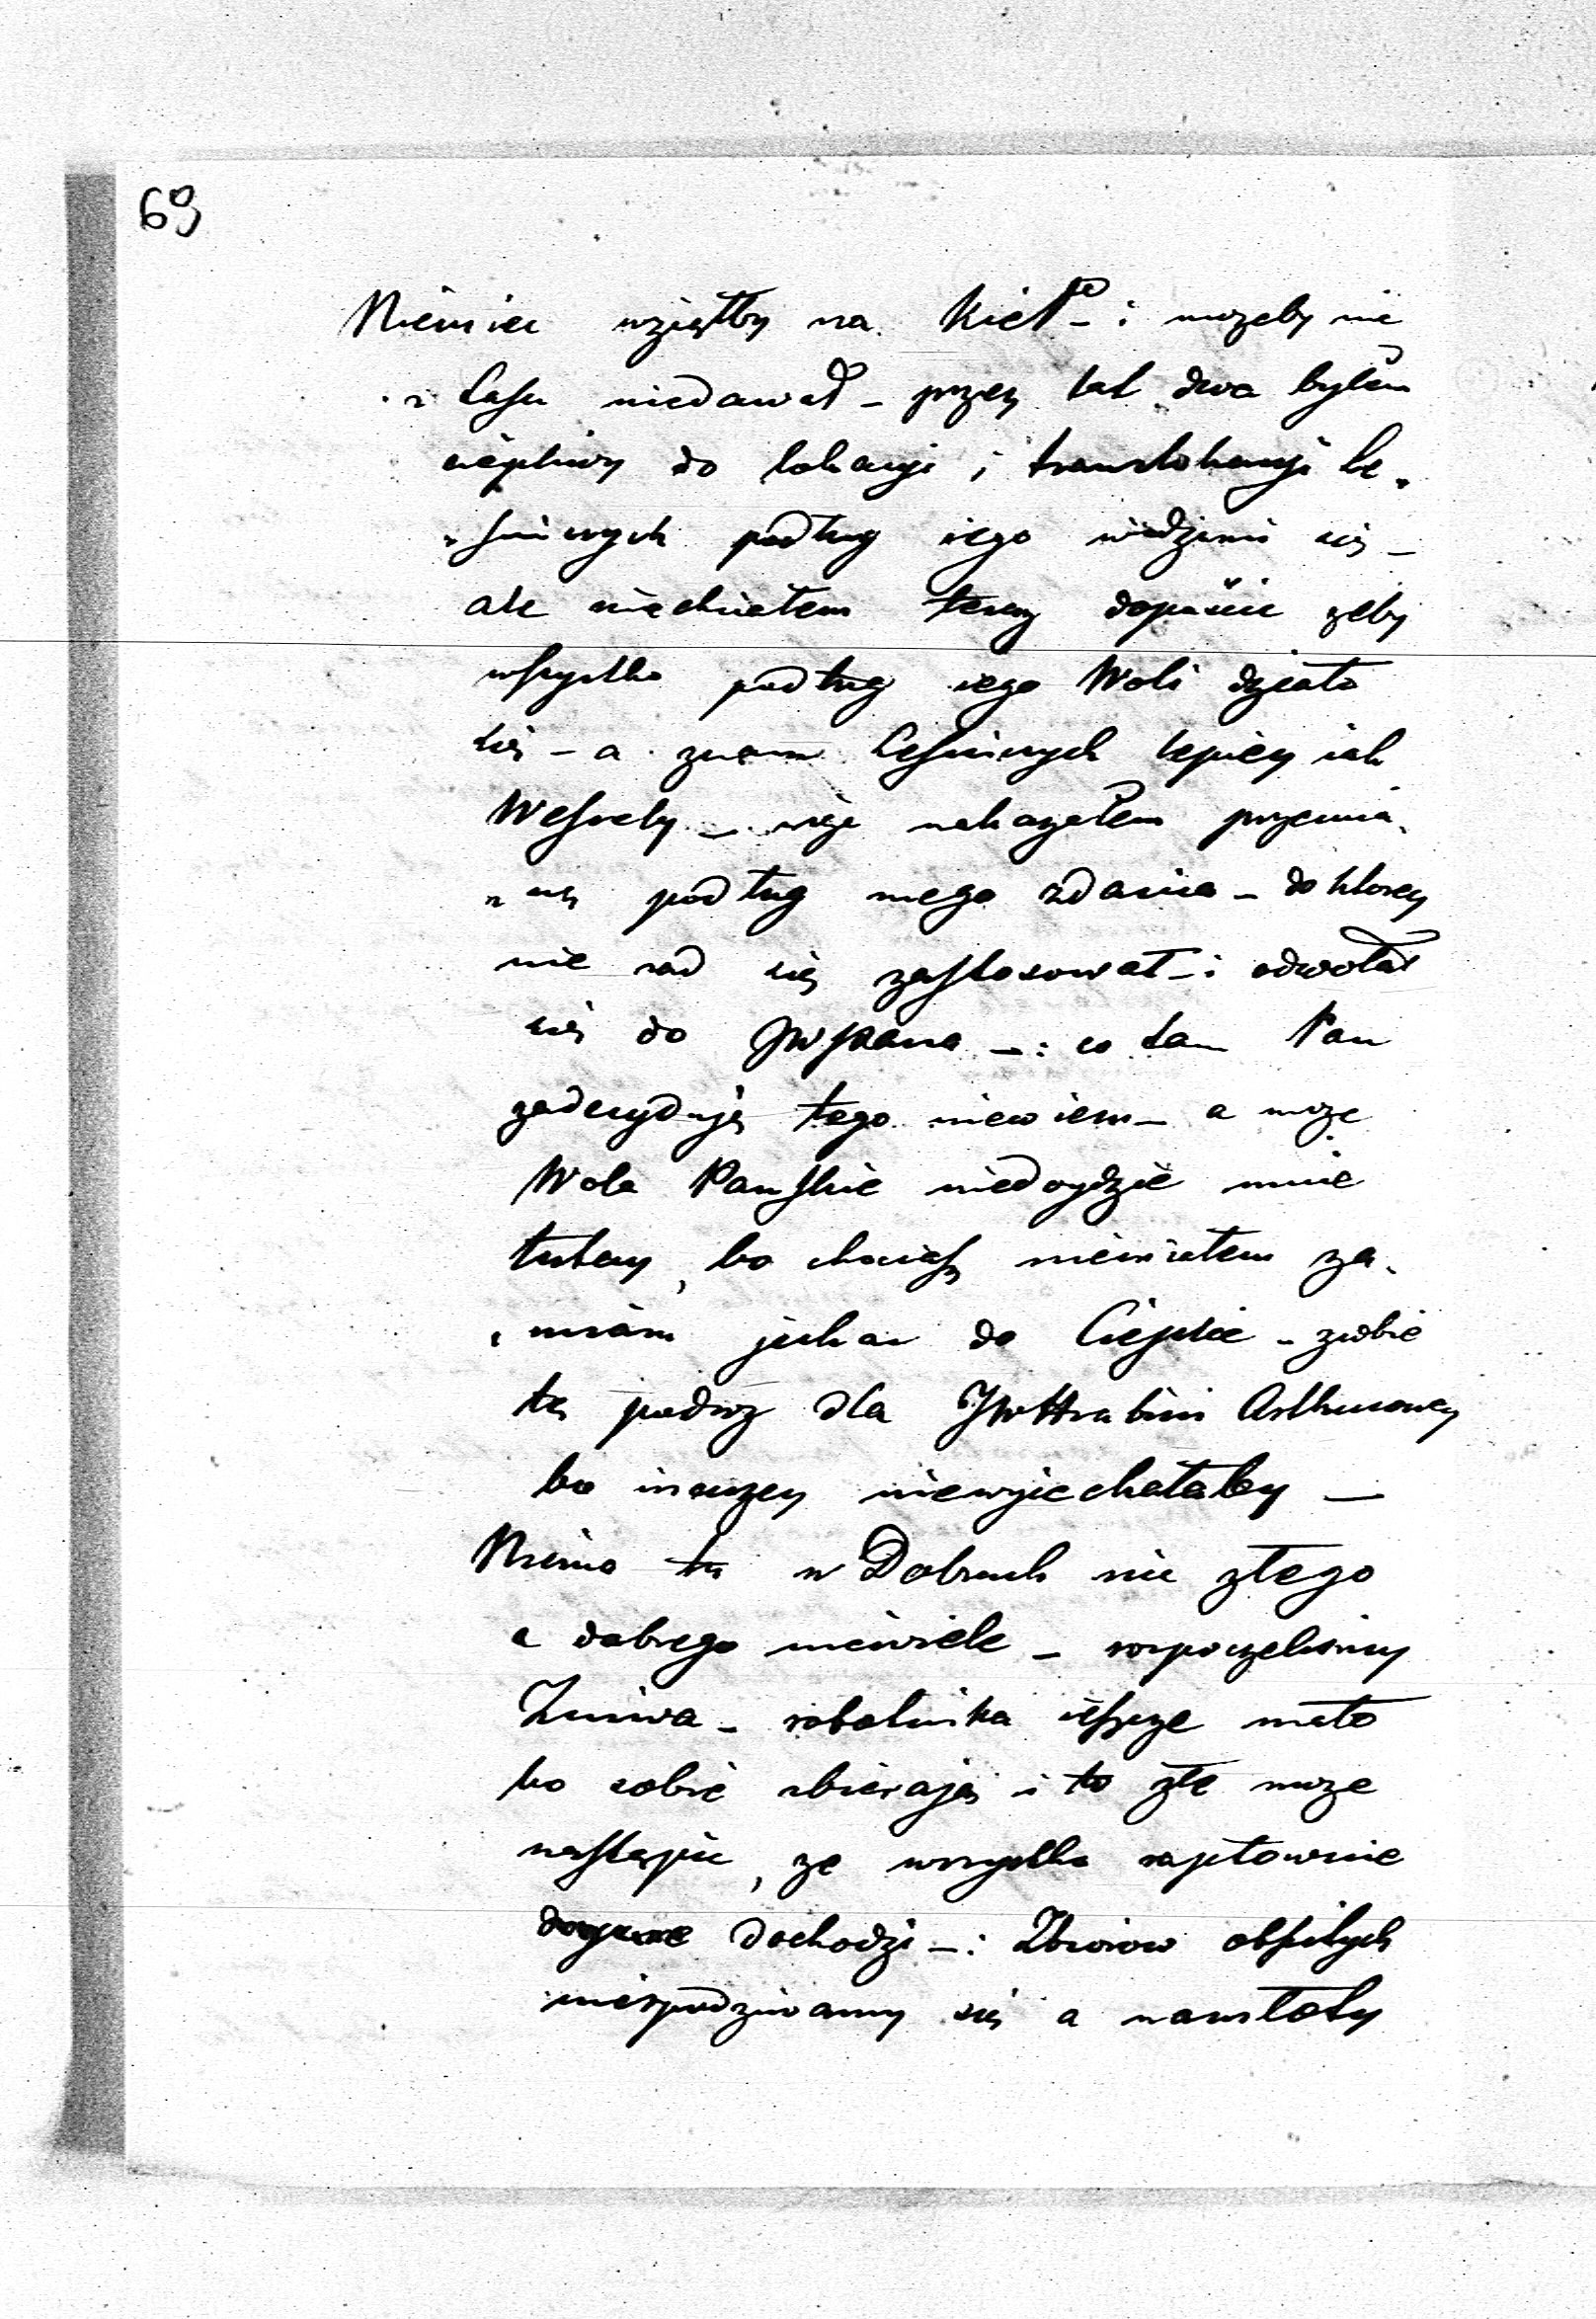 69
Niemiec wziąłby na Kieł – i możeby nic
z Lasu niedawał – przez lat dwa byłem
cierpliwy do lokacyi i translokacyi Le„
„śniczych podług iego widzenia się –
ale niechciałem teraz dopuścić żeby
wszystko podług iego Woli działo
się – a znam Leśniczych lepiey iak
Wessely – więc nakazałem przemia„
„nę podług mego zdania – do ktorey
nie rad się zastosował – i odwołał
się do JWPana – : co tam Pan
zadecyduje tego niewiem – a może
Wola Pańskie niedoydzie mnie
tutay, bo chociasz niemiałem za„
„miaru jechać do Cieplic – zrobie
tę podroz dla JWHrabini Arthurowey
bo inaczey niewyjechałaby —
Niema tu w Dobrach nic złego
a dobrego niewiele – rozpoczelismy
Zniwa – robotnika ieszcze mało
bo sobie zbierają i to złe moze
nastąpić, ze wszystko raptownie
dochodzi – : Zbiorow obfitych
niespodziwamy się a nawstoły